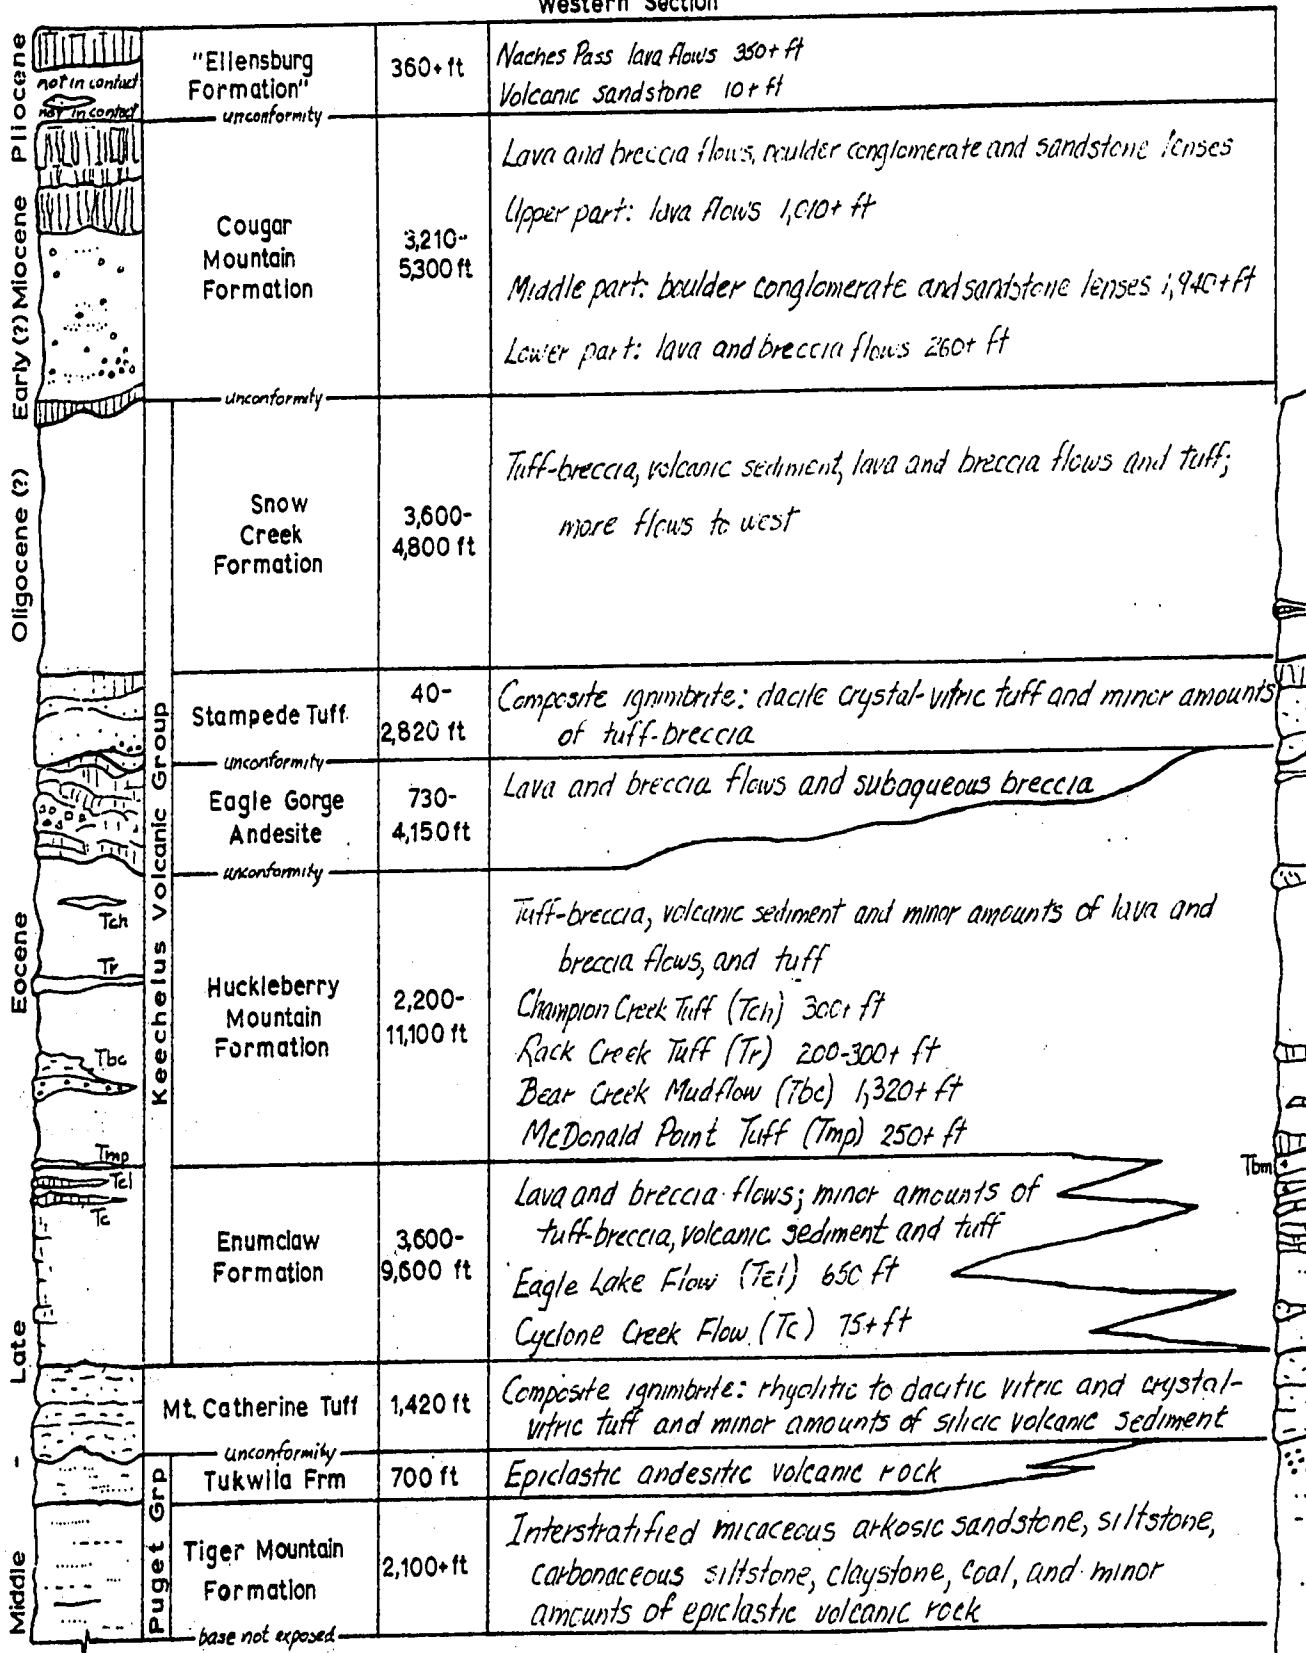 Western Section
Pliocene
Early (?) Miocene
Oligocene (?)
Eocene
Late
-
Middle
not in contact
not in contact
"Ellensburg
Formation"
360+ ft
Naches Pass lava flows 350+ ft
Volcanic sandstone 10+ ft
unconformity
Cougar
Mountain
Formation
3,210-
5,300 ft
Lava and breccia flows, boulder conglomerate and sandstone lenses
Upper part: lava flows 1,010+ ft
Middle part: boulder conglomerate and sandstone lenses 1,940+ ft
Lower part: lava and breccia flows 260+ ft
unconformity
Keechelus Volcanic Group
Snow
Creek
Formation
3,600-
4,800 ft
Tuff-breccia, volcanic sediment, lava and breccia flows and tuff;
more flows to west
Stampede Tuff
40-
2,820 ft
Composite ignimbrite: dacite crystal-vitric tuff and minor amounts
of tuff-breccia
unconformity
Eagle Gorge
Andesite
730-
4,150 ft
Lava and breccia flows and subaqueous breccia
unconformity
Tch
Tr
Tbc
Tmp
Huckleberry
Mountain
Formation
2,200-
11,100 ft
Tuff-breccia, volcanic sediment and minor amounts of lava and
breccia flows, and tuff
Champion Creek Tuff (Tch) 300+ ft
Rack Creek Tuff (Tr) 200-300+ ft
Bear Creek Mudflow (Tbc) 1,320+ ft
McDonald Point Tuff (Tmp) 250+ ft
Tbm
Tel
Tc
Enumclaw
Formation
3,600-
9,600 ft
Lava and breccia flows; minor amounts of
tuff-breccia, volcanic sediment and tuff
Eagle Lake Flow (TEl) 650 ft
Cyclone Creek Flow (Tc) 75+ ft
Mt. Catherine Tuff
1,420 ft
Composite ignimbrite: rhyolitic to dacitic vitric and crystal-
vitric tuff and minor amounts of silicic volcanic sediment
unconformity
Puget Grp
Tukwila Frm
700 ft
Epiclastic andesitic volcanic rock
Tiger Mountain
Formation
2,100+ ft
Interstratified micaceous arkosic sandstone, siltstone,
carbonaceous siltstone, claystone, coal, and minor
amounts of epiclastic volcanic rock
base not exposed